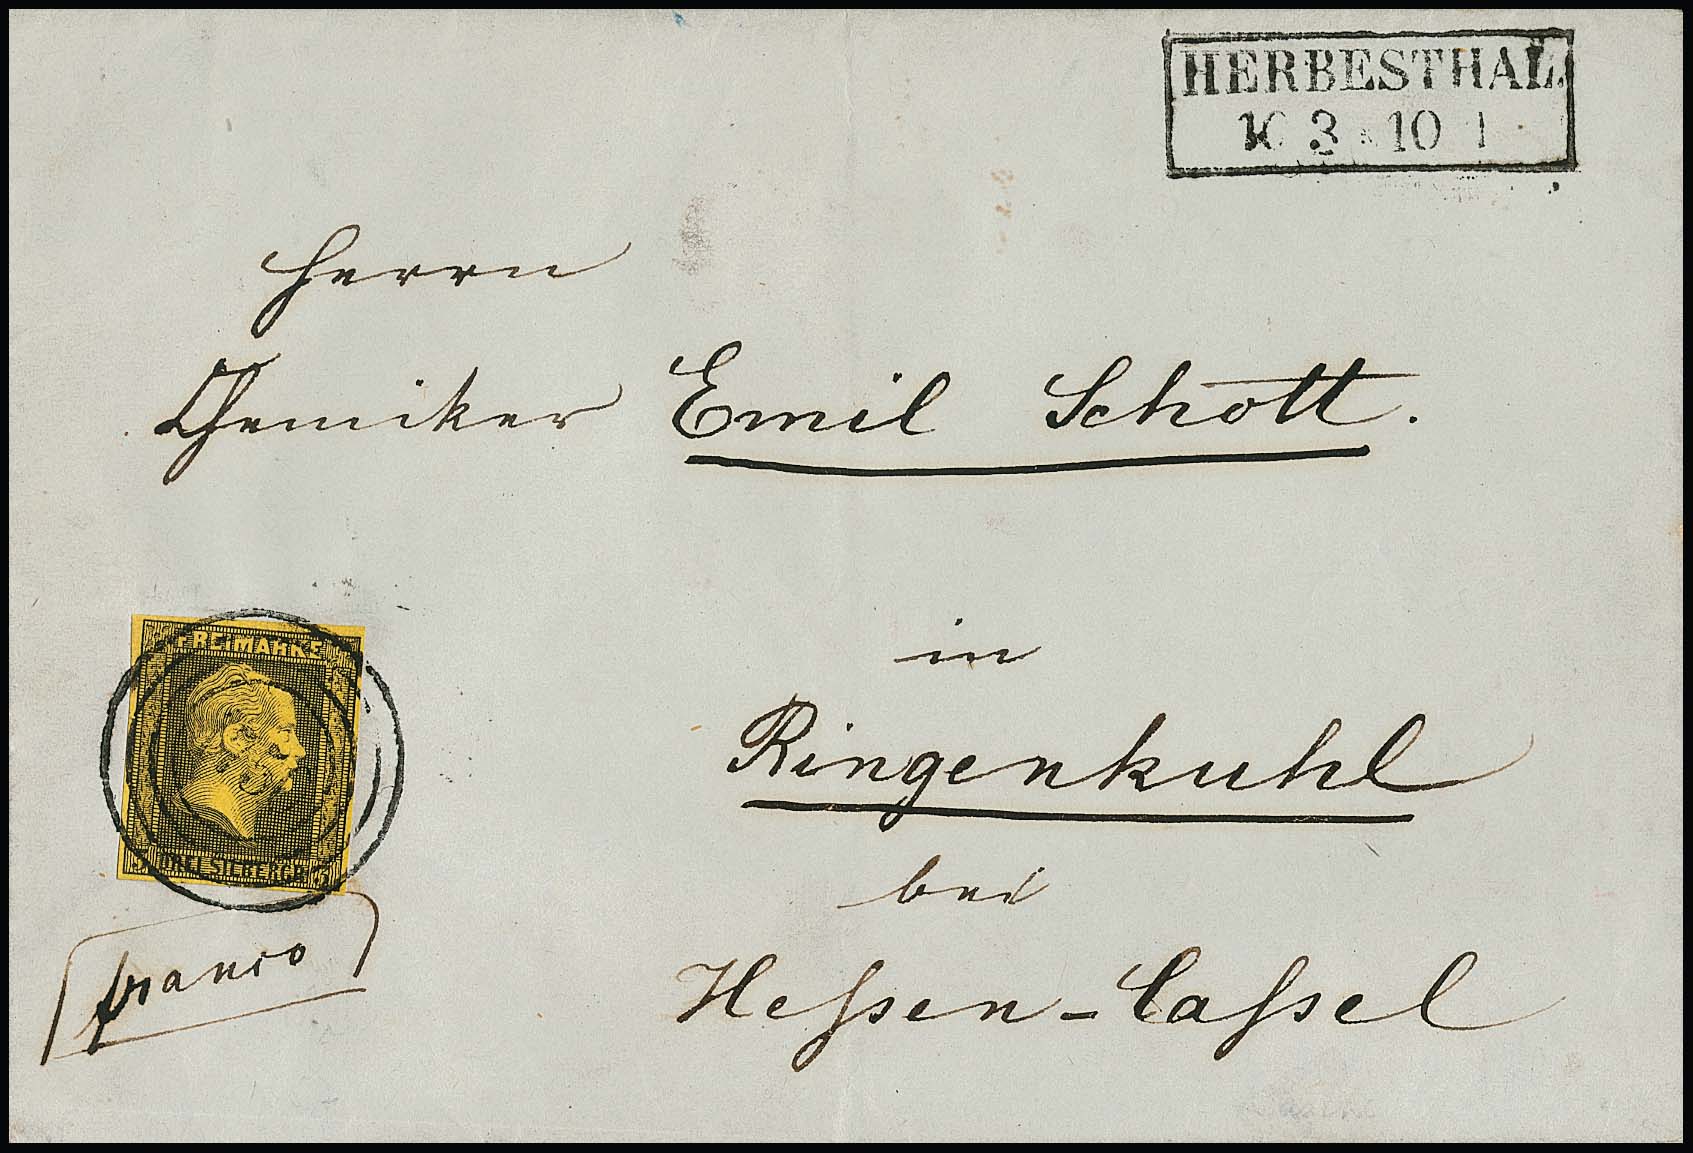 HERBESTHAL
10 3 10 1
Herrn
Chemiker Emil Schott.
in
Ringenkuhl
bei
Hessen-Cassel
FREIMARKE
3 DREI SILBERGR 3
franco